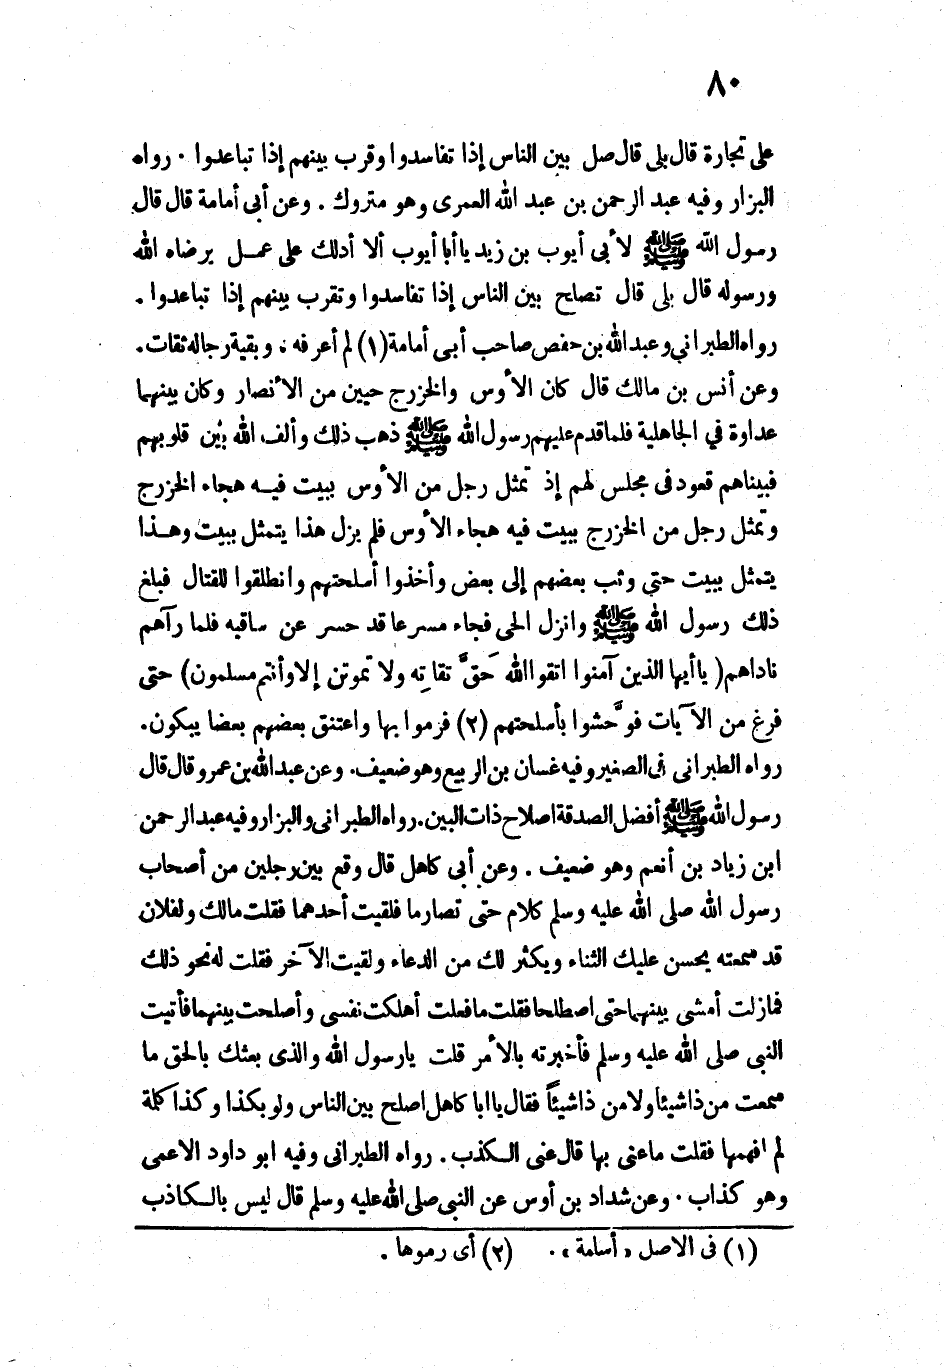 ٨٠
على تجارة قال بلى قال صل بين الناس إذا تفاسدوا وقرب بينهم إذا تباعدوا . رواه
البزار وفيه عبد الرحمن بن عبد الله العمرى وهو متروك . وعن أبى أمامة قال قال
رسول الله ﷺ لأبى أيوب بن زيد يا أبا أيوب ألا أدلك على عمل يرضاه الله
ورسوله قال بلى قال تصلح بين الناس إذا تفاسدوا وتقرب بينهم إذا تباعدوا .
رواه الطبرانى وعبد الله بن حفص صاحب أبى أمامة (١) لم أعرفه ، وبقية رجاله ثقات .
وعن أنس بن مالك قال كان الأوس والخزرج حيين من الأنصار وكان بينهما
عداوة في الجاهلية فلما قدم عليهم رسول الله ﷺ ذهب ذلك وألف الله بين قلوبهم
فبيناهم قعود فى مجلس لهم إذ تمثل رجل من الأوس ببيت فيه هجاء الخزرج
وتمثل رجل من الخزرج ببيت فيه هجاء الأوس فلم يزل هذا يتمثل ببيت وهذا
يتمثل ببيت حتى وثب بعضهم إلى بعض وأخذوا أسلحتهم وانطلقوا للقتال فبلغ
ذلك رسول الله ﷺ وانزل الحى فجاء مسرعا قد حسر عن ساقيه فلما رآهم
ناداهم ( يا أيها الذين آمنوا اتقوا الله حَقَّ تقاتِه ولا تموتن إلا وأنتم مسلمون ) حتى
فرغ من الآيات فوحَّشوا بأسلحتهم (٢) فرموا بها واعتنق بعضهم بعضا يبكون .
رواه الطبرانى فى الصغير وفيه غسان بن الربيع وهو ضعيف . وعن عبد الله بن عمرو قال قال
رسول الله ﷺ أفضل الصدقة اصلاح ذات البين . رواه الطبرانى والبزار وفيه عبد الرحمن
ابن زياد بن أنعم وهو ضعيف . وعن أبى كاهل قال وقع بين رجلين من أصحاب
رسول الله صلى الله عليه وسلم كلام حتى تصارما فلقيت أحدهما فقلت مالك ولفلان
قد سمعته يحسن عليك الثناء ويكثر لك من الدعاء ولقيت الآخر فقلت له نحو ذلك
فمازلت أمشى بينهما حتى اصطلحا فقلت ما فعلت أهلكت نفسى وأصلحت بينهما فأتيت
النبى صلى الله عليه وسلم فأخبرته بالأمر قلت يارسول الله والذى بعثك بالحق ما
سمعت من ذا شيئا ولا من ذا شيئاً فقال يا ابا كاهل اصلح بين الناس ولو بكذا وكذا كلمة
لم افهمها فقلت ما عنى بها قال عنى الكذب . رواه الطبرانى وفيه ابو داود الاعمى
وهو كذاب . وعن شداد بن أوس عن النبى صلى الله عليه وسلم قال ليس بالكاذب
(١) فى الاصل « أسامة » . (٢) أى رموها .